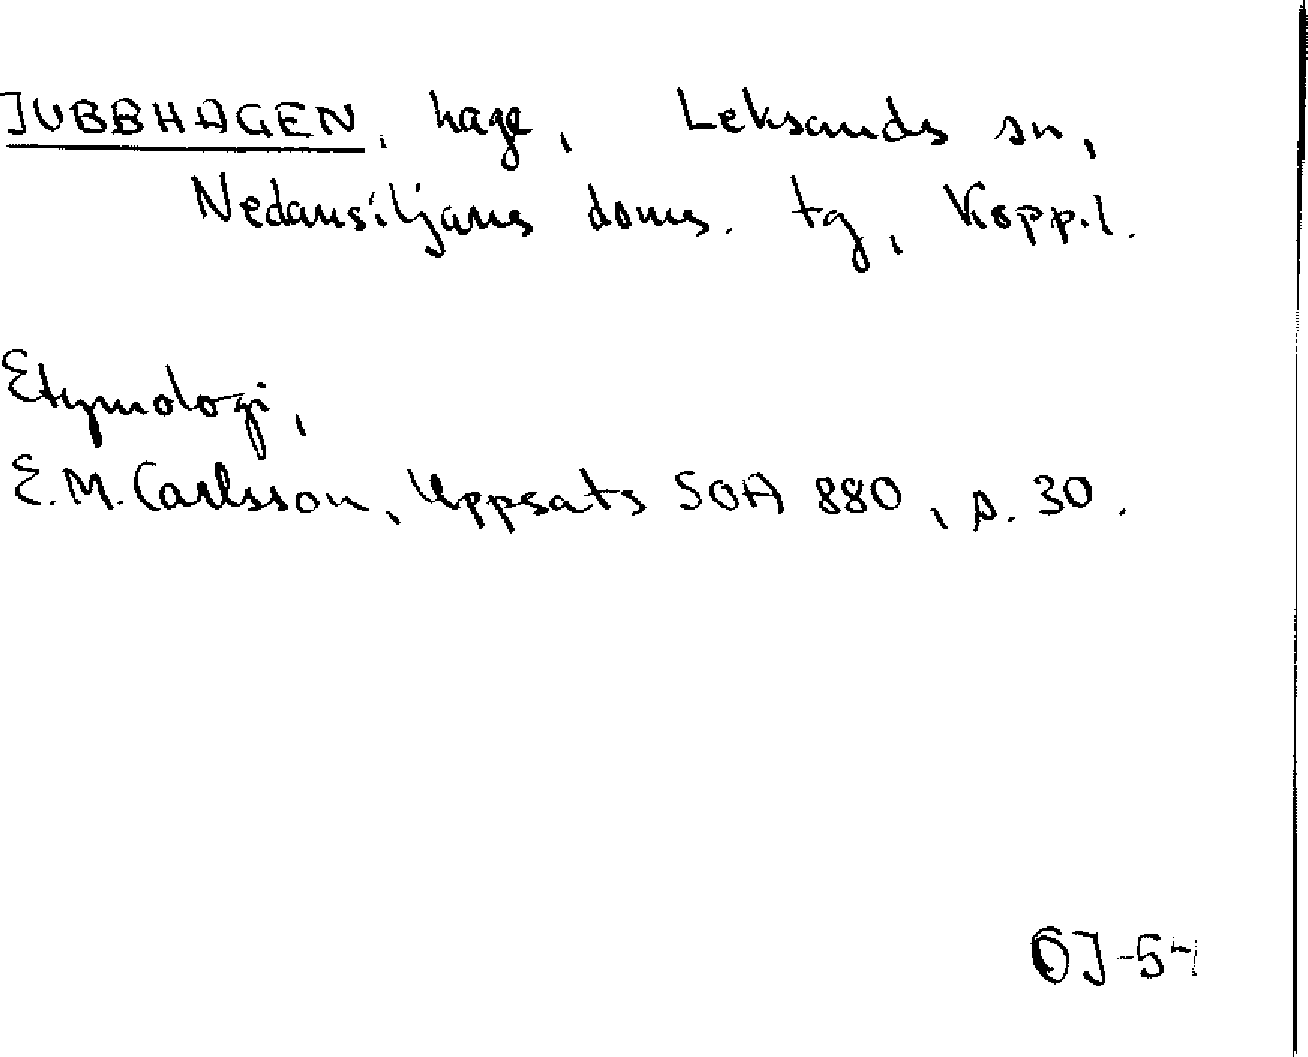 JUBBHAGEN, hage, Leksands sn,
Nedansiljans doms. tg, Kopp.l.
Etymologi,
E.M. Carlsson, Uppsats SOA 880, s. 30.